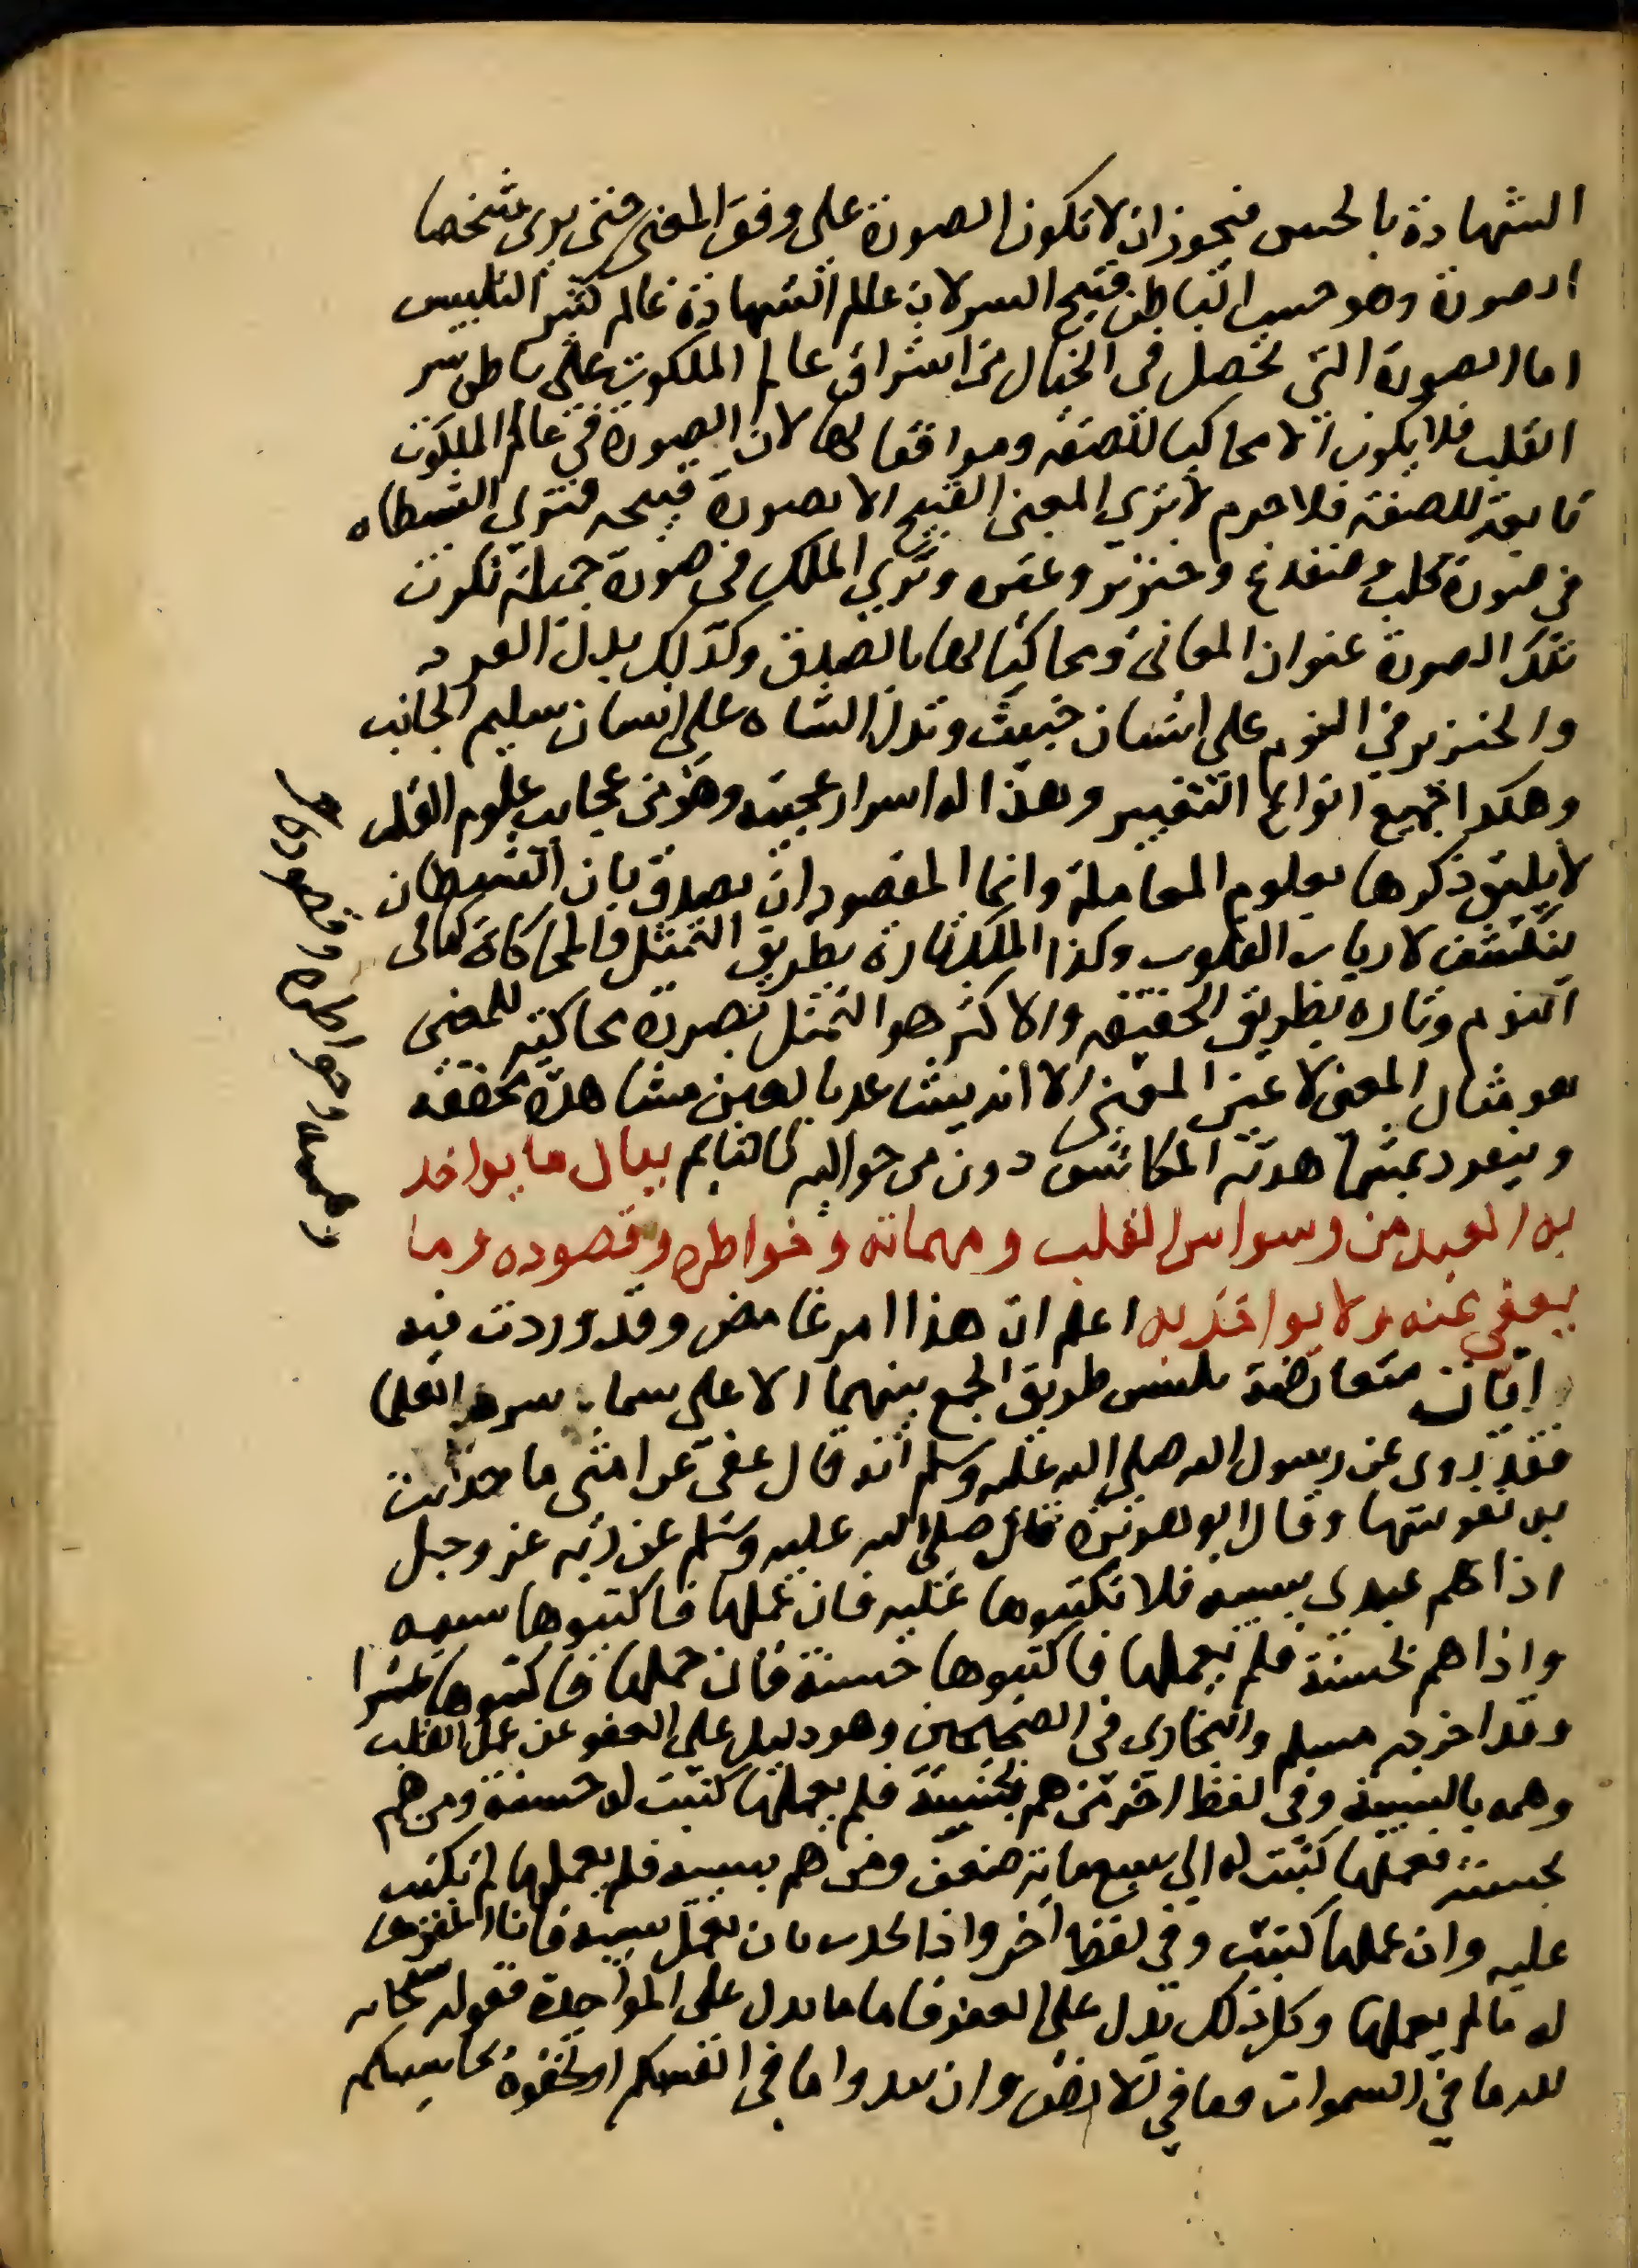 الشهادة بالحس فيجوز ان لا تكون الصورة على وفق المعنى حتى يرى شخصا
الصورة وهو خبيث الباطن قبيح السر لان عالم الشهادة عالم كثير التلبيس
اما الصورة التي تحصل في الخيال من اشراق عالم الملكوت على باطن سر
القلب فلا يكون الا محاكيا للصفة وموافقا لها لان الصورة في عالم الملكوت
تابعة للصفة فلا جرم لا يرى المعنى القبيح الا بصورة قبيحه فترى الشيطان
في صورة كلب وضفدع وخنزير وغيره وترى الملك في صورة جميلة تكون
تلك الصورة عنوان المعاني ومحاكيا لها بالصدق وكذلك يدل القرد
والخنزير في النوم على انسان خبيث وتدل الشاه على انسان سليم الجانب
وهكذا جميع انواع التعبير وهذا له اسرار عجيبة وهو من عجايب علوم القلب
لا يليق ذكرها بعلوم المعاملة وانما المقصود ان يصدق بان الشيطان
ينكشف لارباب القلوب وكذا الملك تارة بطريق التمثل والمحاكاة كما في
النوم وتاره بطريق الحقيقة والاكثر هو التمثل بصورة محاكية للمعنى
هو مثال المعنى لا عين المعنى الا انه يشاهد بالعين مشاهدة محققة
وينفرد بمشاهدته المكاشف دون من حواليه كالنايم بيان ما يواخذ
به العبد من وسواس القلب وهماته وخواطره وقصوده وما
يعفى عنه ولا يواخذ به اعلم ان هذا امر غامض وقد وردت فيه
ايات متعارضة يلتبس طريق الجمع بينهما الا على العلما
فقد روى عن رسول الله صلى الله عليه وسلم انه قال عفى عن امتى ما حدثت
به نفوسها وقال ابو هريرة قال صلى الله عليه وسلم عن ربه عز وجل
اذا هم عبدى بسيئة فلا تكتبوها عليه فان عملها فاكتبوها سيئه
واذا هم بحسنة فلم يعملها فاكتبوها حسنة فان عملها فاكتبوها عشرا
وقد اخرجه مسلم والبخارى في الصحيحين وهو دليل على العفو عن عمل القلب
وهمه بالسيئة وفي لفظ اخر من هم بحسنة فلم يعملها كتبت له حسنة ومن هم
بحسنة فعملها كتبت له الى سبع ماية ضعف ومن هم بسيئه فلم يعملها لم تكتب
عليه وان عملها كتبت وفي لفظ اخر واذا تحدث بان يعمل سيئه فانا اغفرها
له ما لم يعملها وكل ذلك يدل على العفو فاما ما يدل على المواخذة فقوله سبحانه
لله ما في السموات وما في الارض وان تبدوا ما في انفسكم او تخفوه يحاسبكم
وهمه وخواطره وقصوده